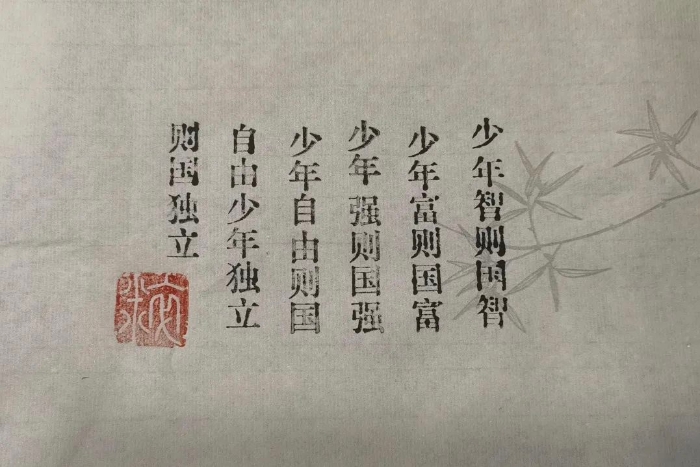 少年智则国智
少年富则国富
少年强则国强
少年自由则国
自由少年独立
则国独立